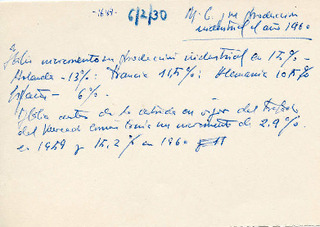 6/2/30
M. C. y su producción
industrial el año 1960
Italia incremento su producción industrial en 12% -
Holanda - 13%: Francia 11,5%: Alemania 10,5%
España - 6%.
Italia antes de la entrada en vigor del Tratado
del Mercado Común tenía un incremento de 2.9%
en 1959 y 15,2% en 1960